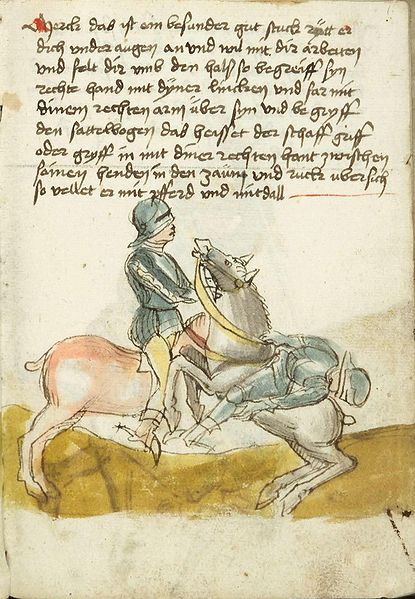 Merck das ist ein besunder gut stuck rytt er
dich under augen an und wil mit dir arbeiten
und felt dir umb den hals so begreiff syn
rechte hand mit dyner lincken und far mit
dinem rechten arm über syn und begryff
den sattelbogen das heisset der schaff griff
oder gryff in mit diner rechten hant zwischen
sainen henden in den zaum und ruck übersich
so vellet er mit pferd und mitdall